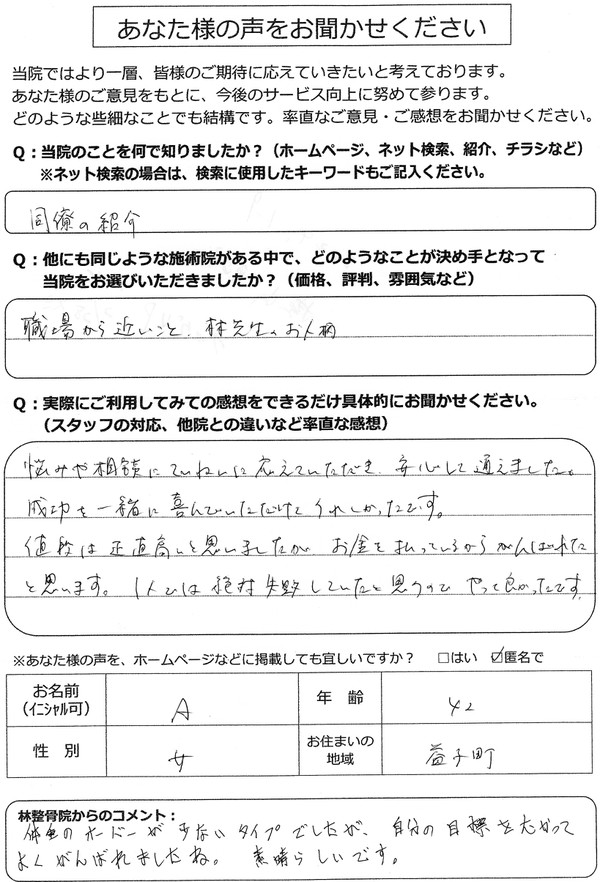 あなた様の声をお聞かせください
当院ではより一層、皆様のご期待に応えていきたいと考えております。
あなた様のご意見をもとに、今後のサービス向上に努めて参ります。
どのような些細なことでも結構です。率直なご意見・ご感想をお聞かせください。
Q:当院のことを何で知りましたか?(ホームページ、ネット検索、紹介、チラシなど)
※ネット検索の場合は、検索に使用したキーワードもご記入ください。
同僚の紹介
Q:他にも同じような施術院がある中で、どのようなことが決め手となって
当院をお選びいただきましたか?(価格、評判、雰囲気など)
職場から近いこと、林先生のお人柄
Q:実際にご利用してみての感想をできるだけ具体的にお聞かせください。
(スタッフの対応、他院との違いなど率直な感想)
悩みや相談にていねいに応えていただき、安心して通えました。
成功を一緒に喜んでいただけてうれしかったです。
値段は正直高いと思いましたが お金を払っているからがんばれた
と思います。1人では絶対失敗していたと思うので やって良かったです
※あなた様の声を、ホームページなどに掲載しても宜しいですか? □はい ☑匿名で
お名前 A 年齢 42
(イニシャル可)
性別 女 お住まいの 益子町
地域
林整骨院からのコメント:
体重のオードーが少ないタイプでしたが、自分の目標をむかって
よくがんばれましたね。 素晴らしいです。